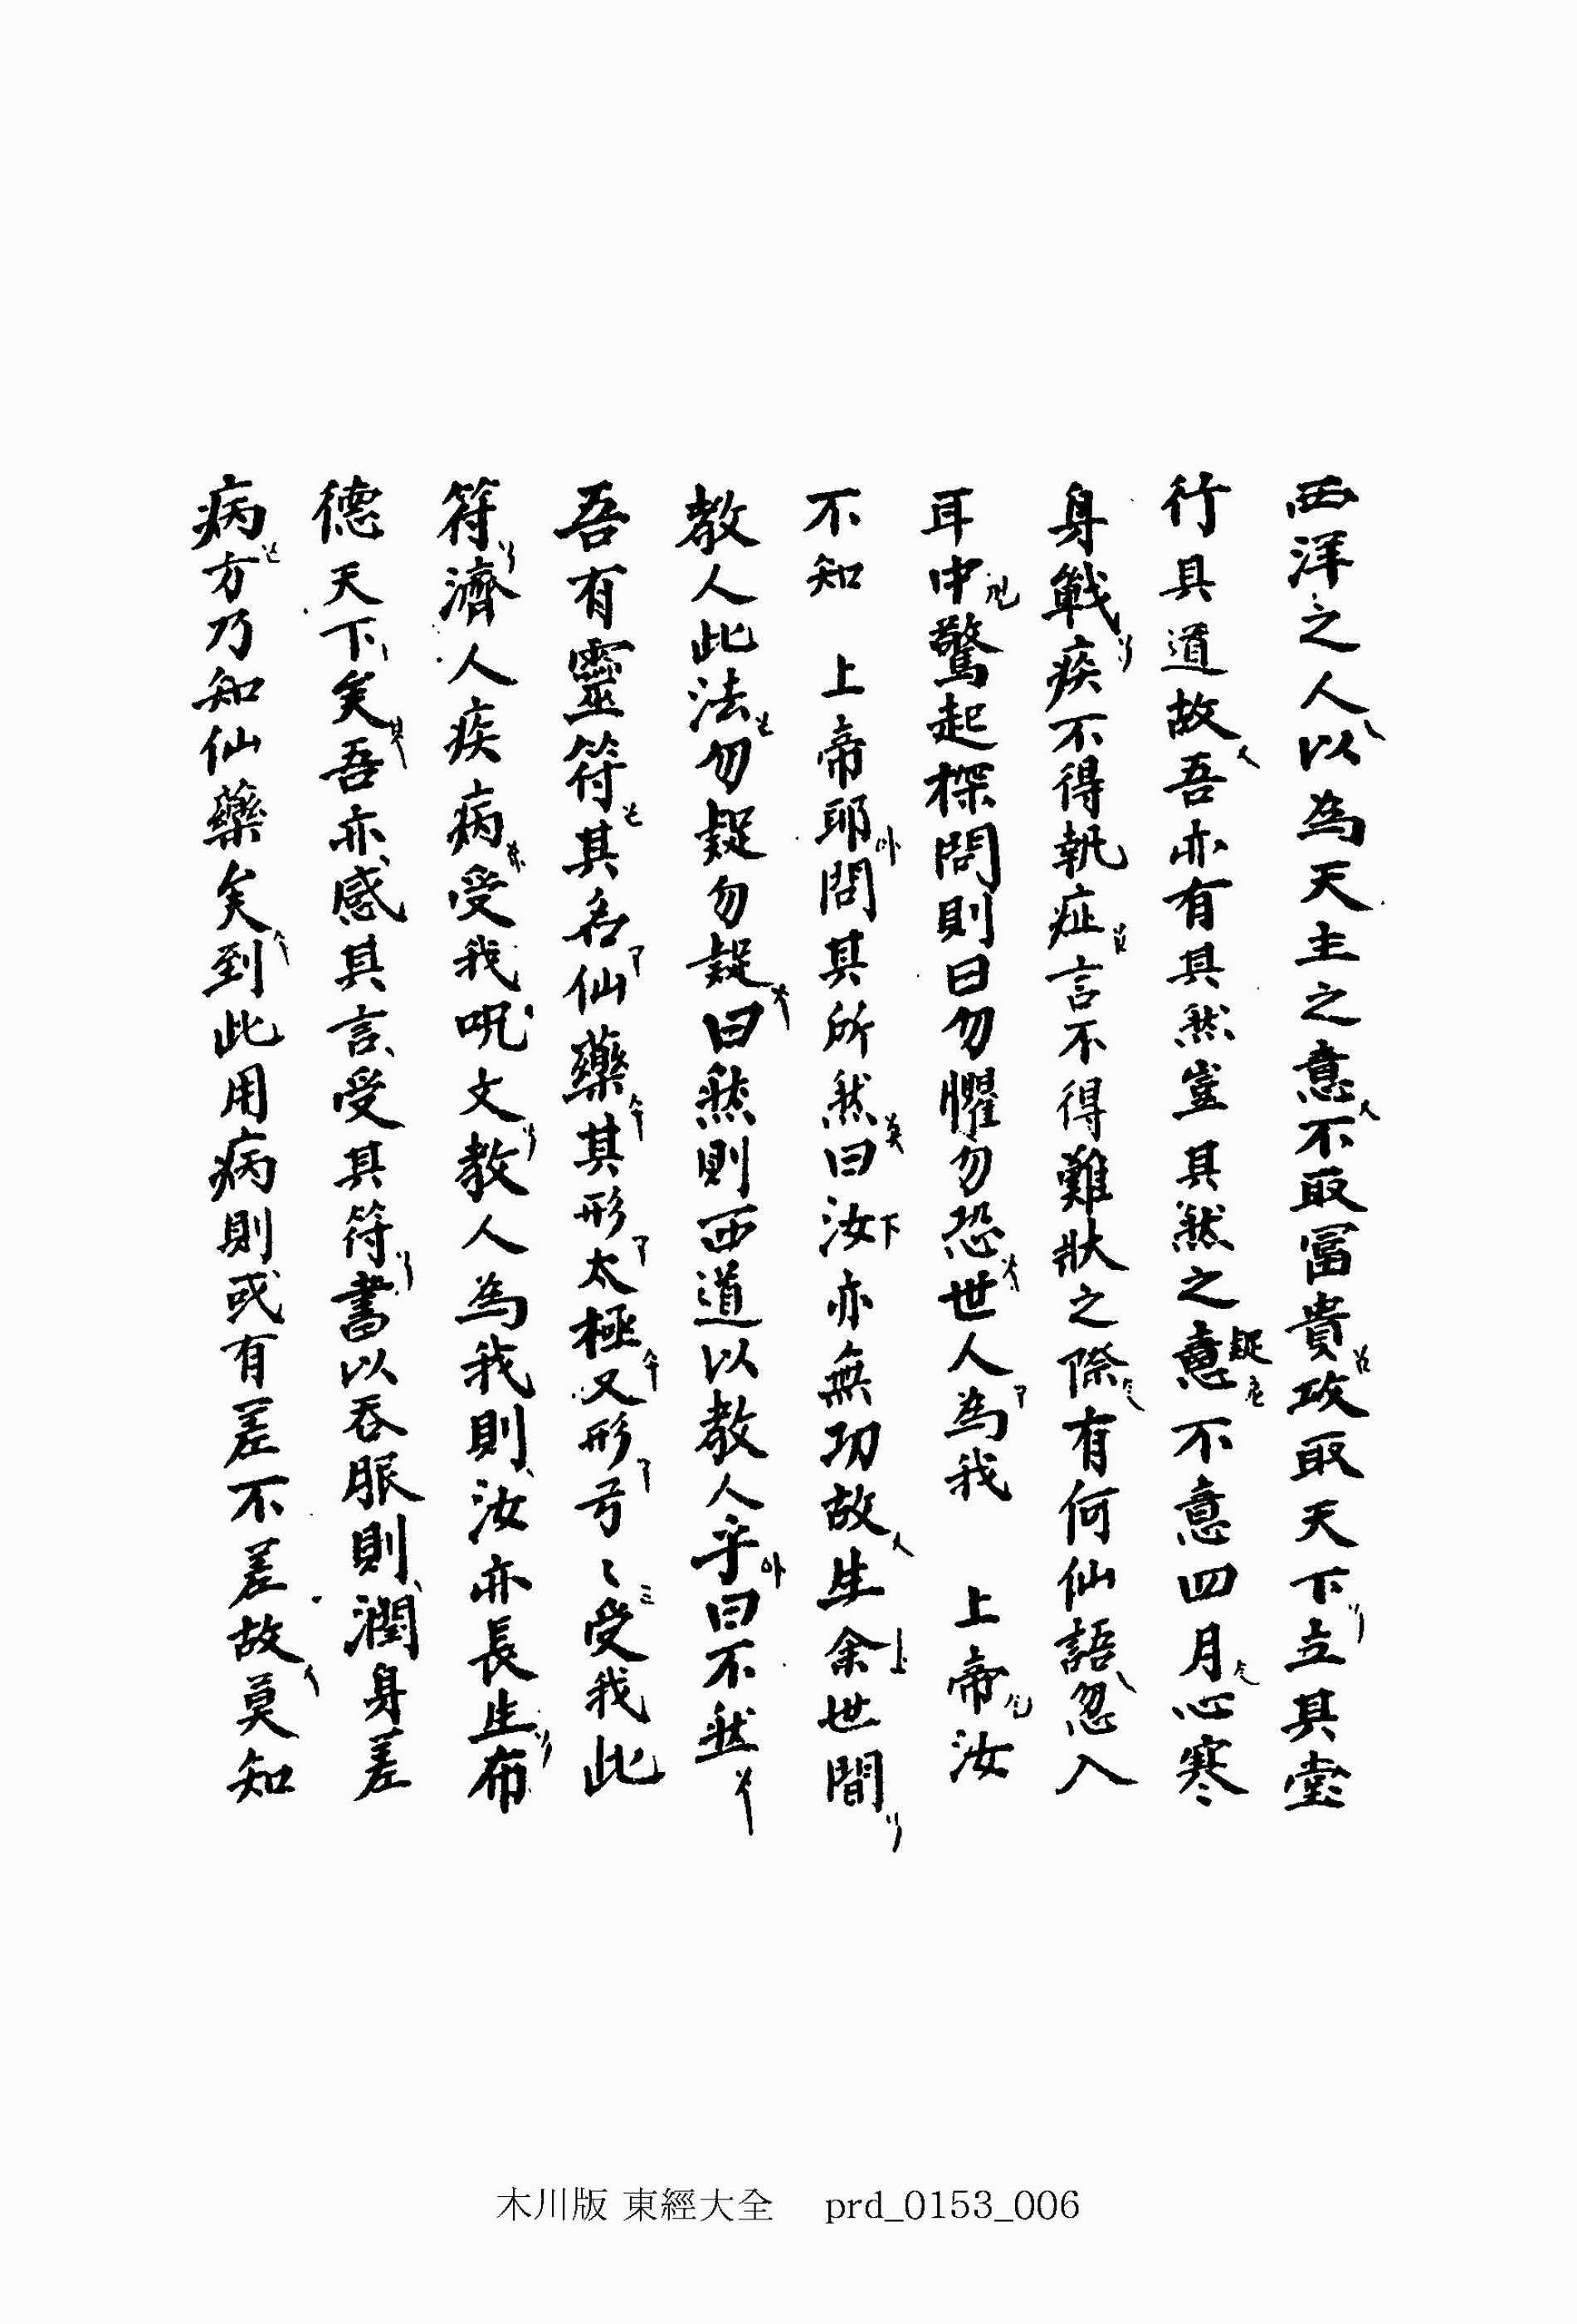 西洋之人以為天主之意不取冨貴攻取天下立其堂
行其道故吾亦有其然豈其然之意疑不意四月心寒
身戰疾不得執症言不得難狀之際有何仙語忽入
耳中驚起探問則曰勿懼勿恐世人為我 上帝汝
不知 上帝耶問其所然曰汝亦無功故生余世間
教人此法勿疑勿疑曰然則西道以教人乎曰不然
吾有靈符其名仙藥其形太極又形弓〻受我此
符濟人疾病受我呪文教人為我則汝亦長生布
德天下矣吾亦感其言受其符書以吞服則潤身差
病方乃知仙藥矣到此用病則或有差不差故莫知
木川版 東經大全 prd_0153_006